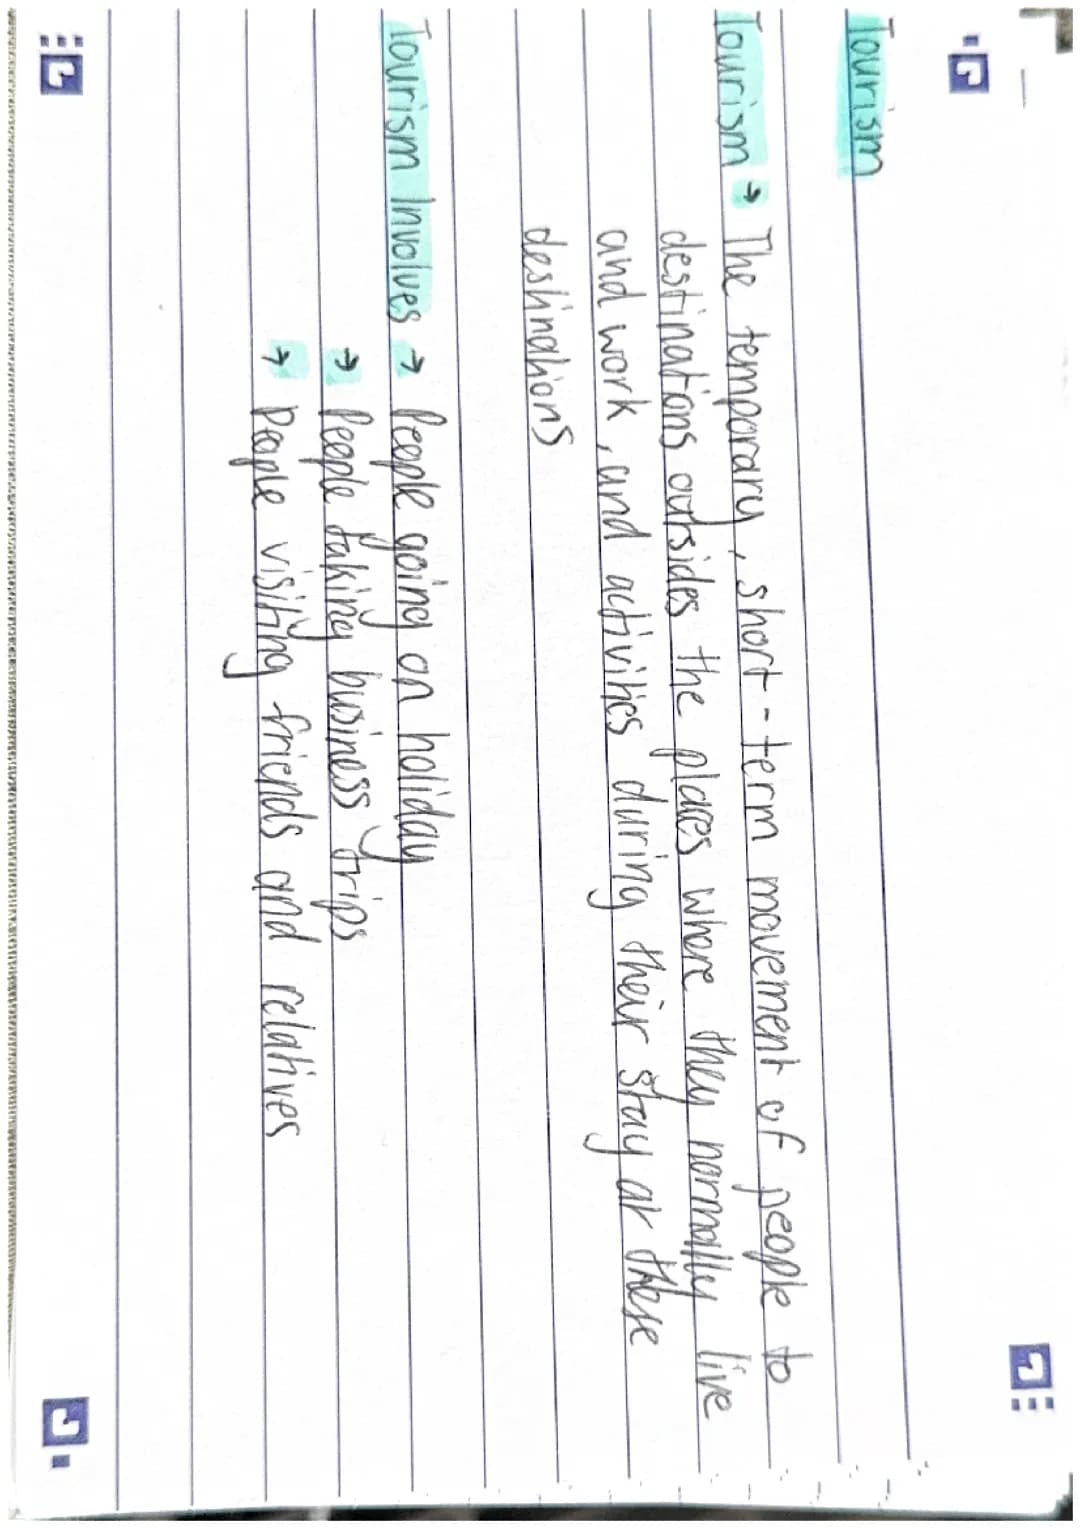 Tourism
Tourism → The temporary, short-term movement of people to
destinations outsides the places where they normally live
and work, and activities during their stay at these
destinations
Tourism Involves → People going on holiday
→ People taking business trips
→ People visiting friends and relatives